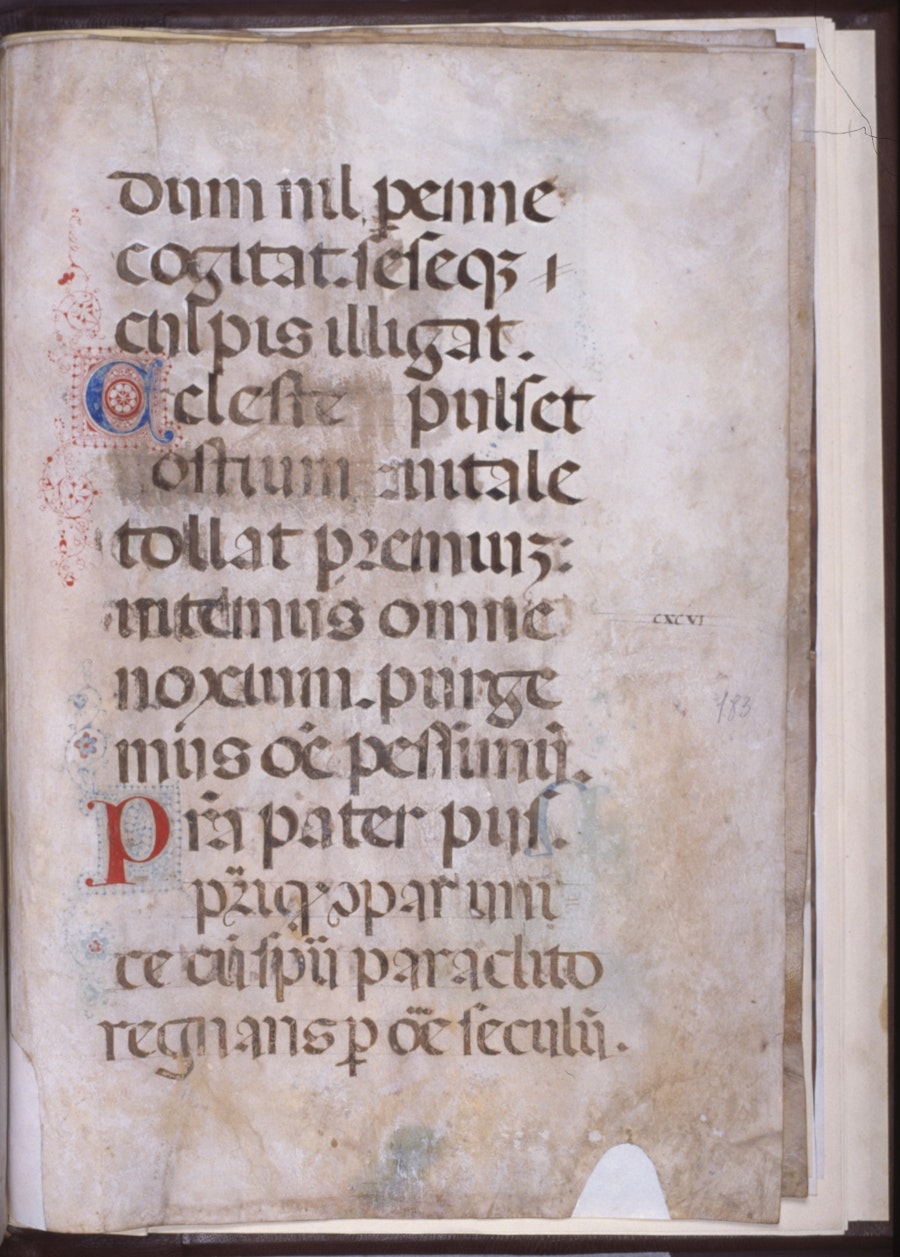 dum nil perenne
cogitat. seseqꝫ
culpis illigat.
Celeste pulset
ostium uitale
tollat premiuꝫ:
uitemus omne
noxium. purge
mus oē pessimū.
Prīa pater pijſ.
priqꝫ ↄpar uni
ce cū spū paraclito
regnans ꝑ oē seculū.
CXCVI
183